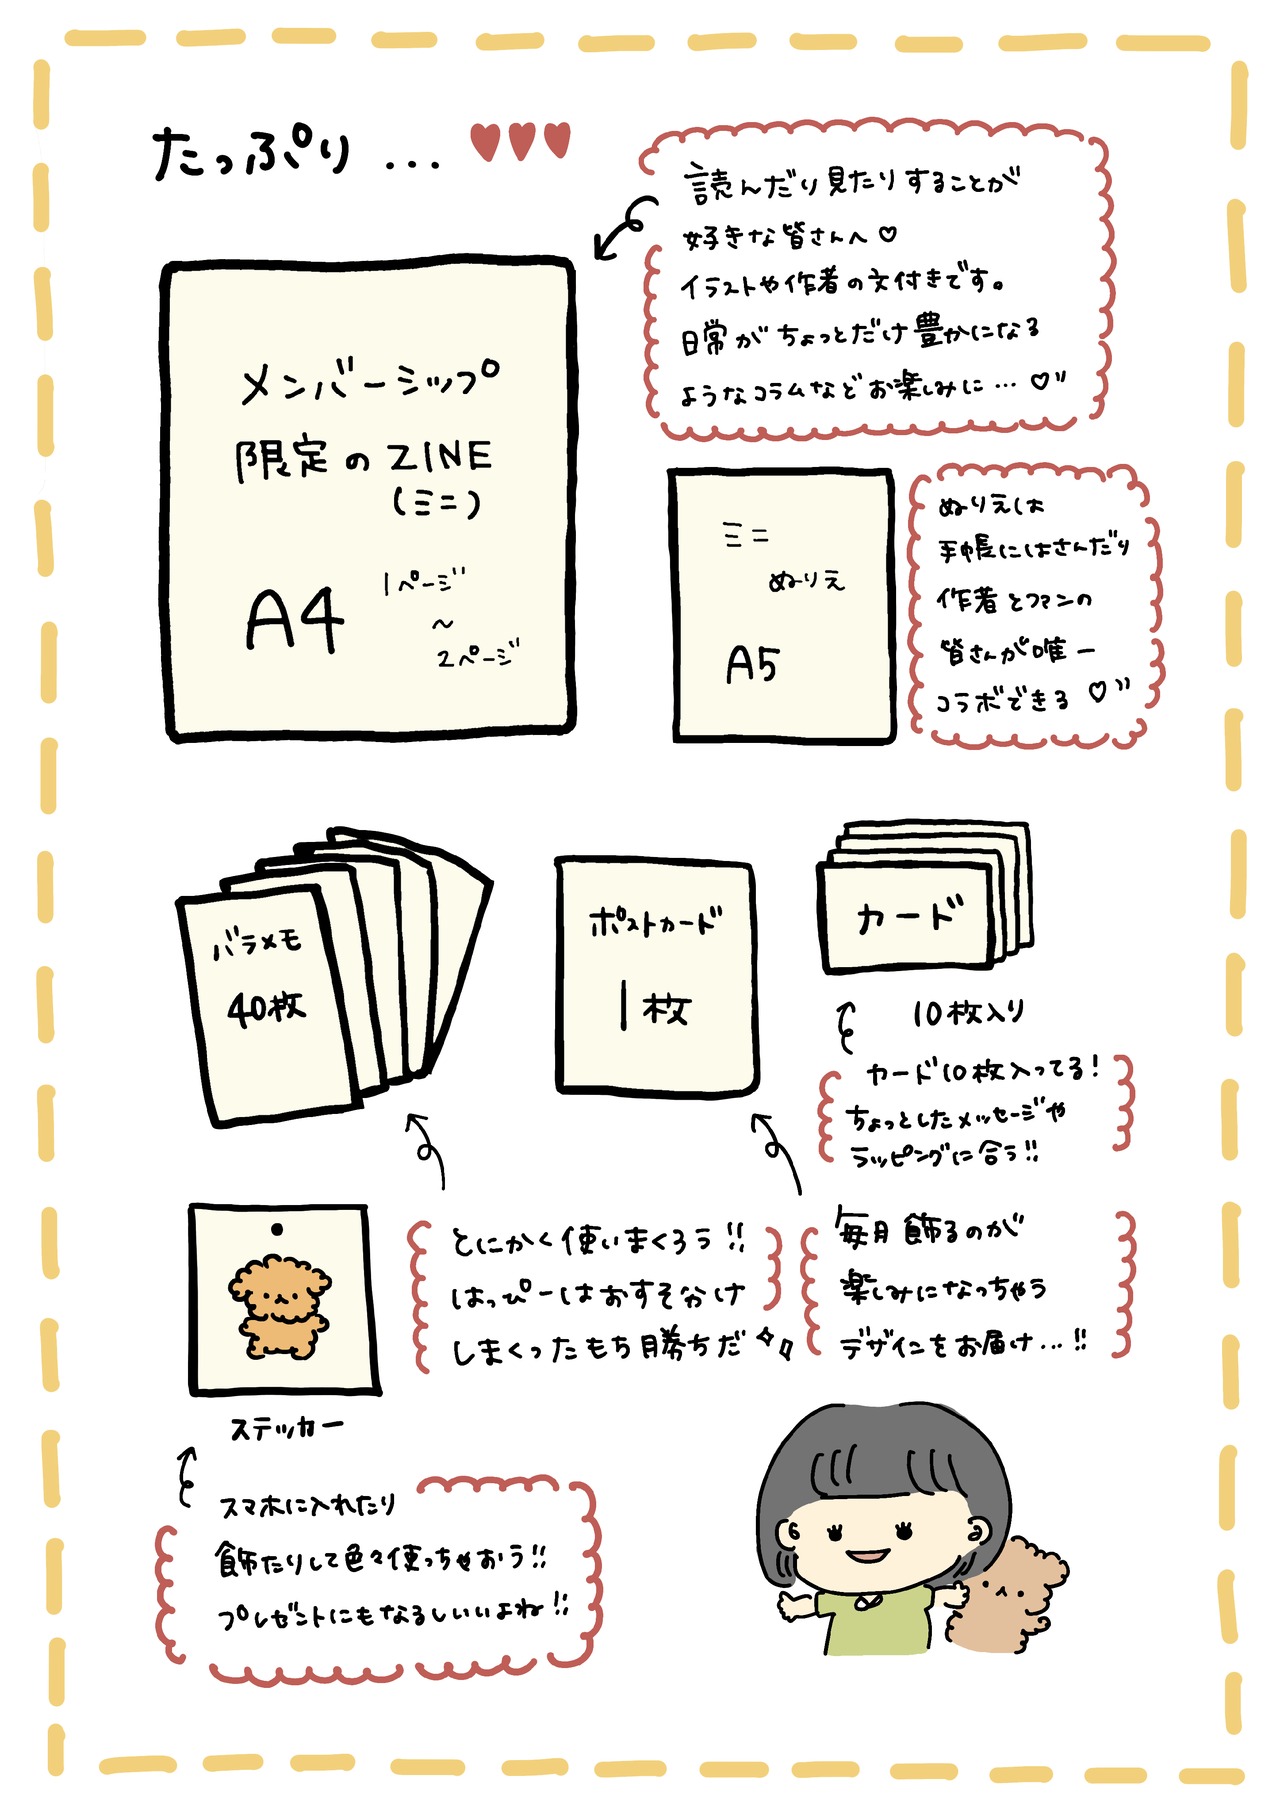 たっぷり ... ♥♥♥
読んだり見たりすることが
好きな皆さんへ♡
イラストや作者の文付きです。
日常がちょっとだけ豊かになる
ようなコラムなどお楽しみに…♡"
メンバーシップ
限定のZINE
(ミニ)
A4
1ページ
~
2ページ
ミニ
ぬりえ
A5
ぬりえは
手帳にはさんだり
作者とファンの
皆さんが唯一
コラボできる♡"
バラメモ
40枚
ポストカード
1枚
カード
10枚入り
カード10枚入ってる!
ちょっとしたメッセージや
ラッピングに合う!!
とにかく使いまくろう!!
はっぴーはおすそ分け
しまくったもち勝ちだ
毎月飾るのが
楽しみになっちゃう
デザインをお届け...!!
ステッカー
スマホに入れたり
飾たりして色々使っちゃおう!!
プレゼントにもなるしいいよね!!